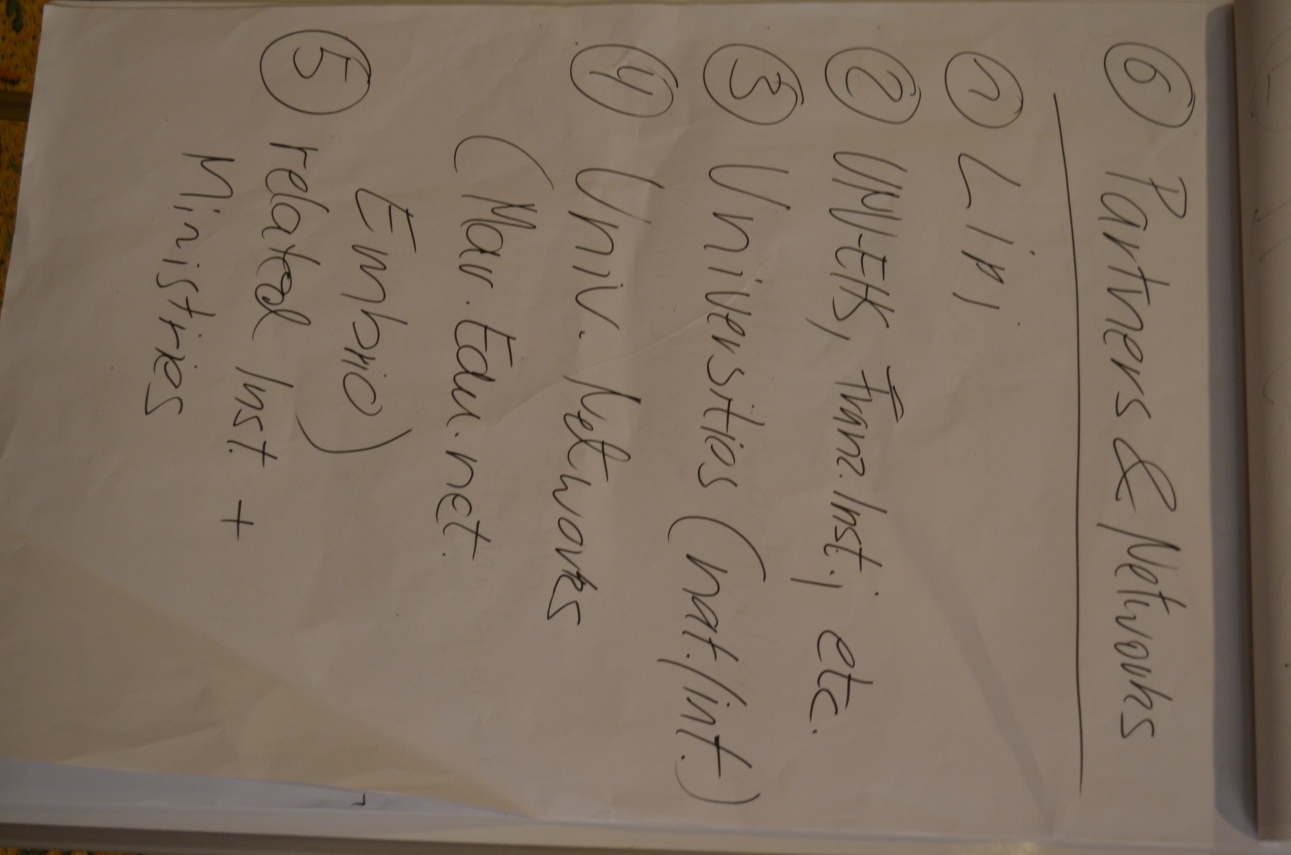 ⑥ Partners & Networks
① Lipi
② UNI-EHS, Franz. Inst., etc.
③ Universities (nat./int.)
④ Univ. Networks
(Mar. Edu. net.
Embrio)
⑤ related Inst. +
Ministries